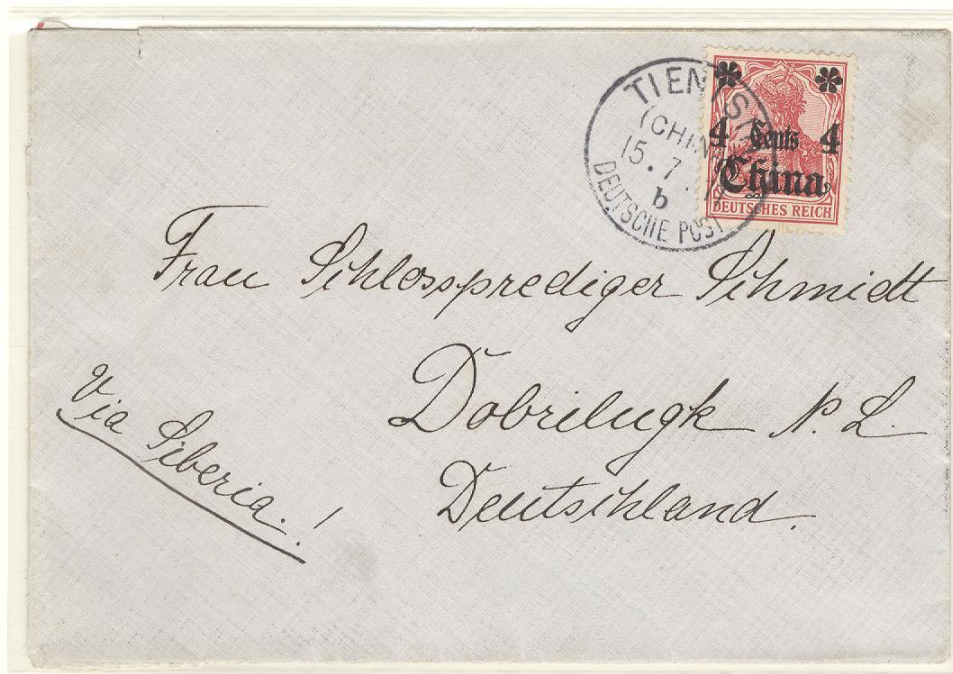 TIENTSIN
(CHINA)
15.7.
b
DEUTSCHE POST
4 Cents 4
China
DEUTSCHES REICH
Frau Schlossprediger Schmidt
Dobrilugk N. L.
Deutschland.
Via Siberia. !